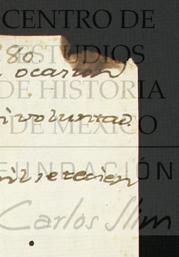 CENTRO DE
80.
ESTUDIOS
ocasion
DE HISTORIA
i voluntad.
DE MÉXICO
FUNDACIÓN
Carlos Slim